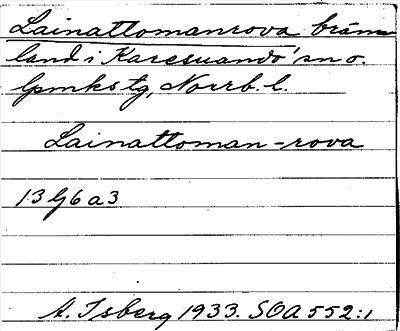 Lainattomanrova bränn
land i Karesuando' sn o.
lpmkstg, Norrb. l.
Lainattoman-rova
13 G6 a3
A. Isberg 1933. SOA 552:1